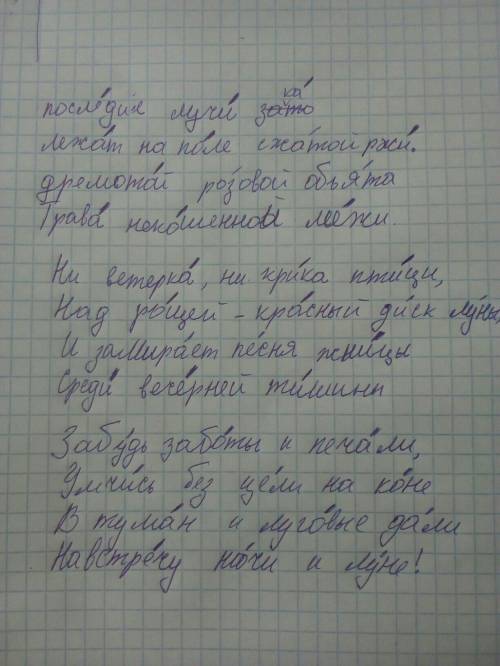 после́дня лучи́ зака́
лежа́т на по́ле сжа́той ржи́.
дремото́й ро́зовой объя́та
Трава́ неко́шенной ме́жи.
Ни ветерка́, ни кри́ка пти́ци,
Над ро́щей - кра́сный ди́ск лу́ны,
И замира́ет пе́сня жни́цы
Среди́ вече́рней ти́шины
Забу́дь забо́ты и печа́ли,
Умчи́сь без це́ли на ко́не
В тума́н и луго́вые да́ли
Навстре́чу но́чи и лу́не!